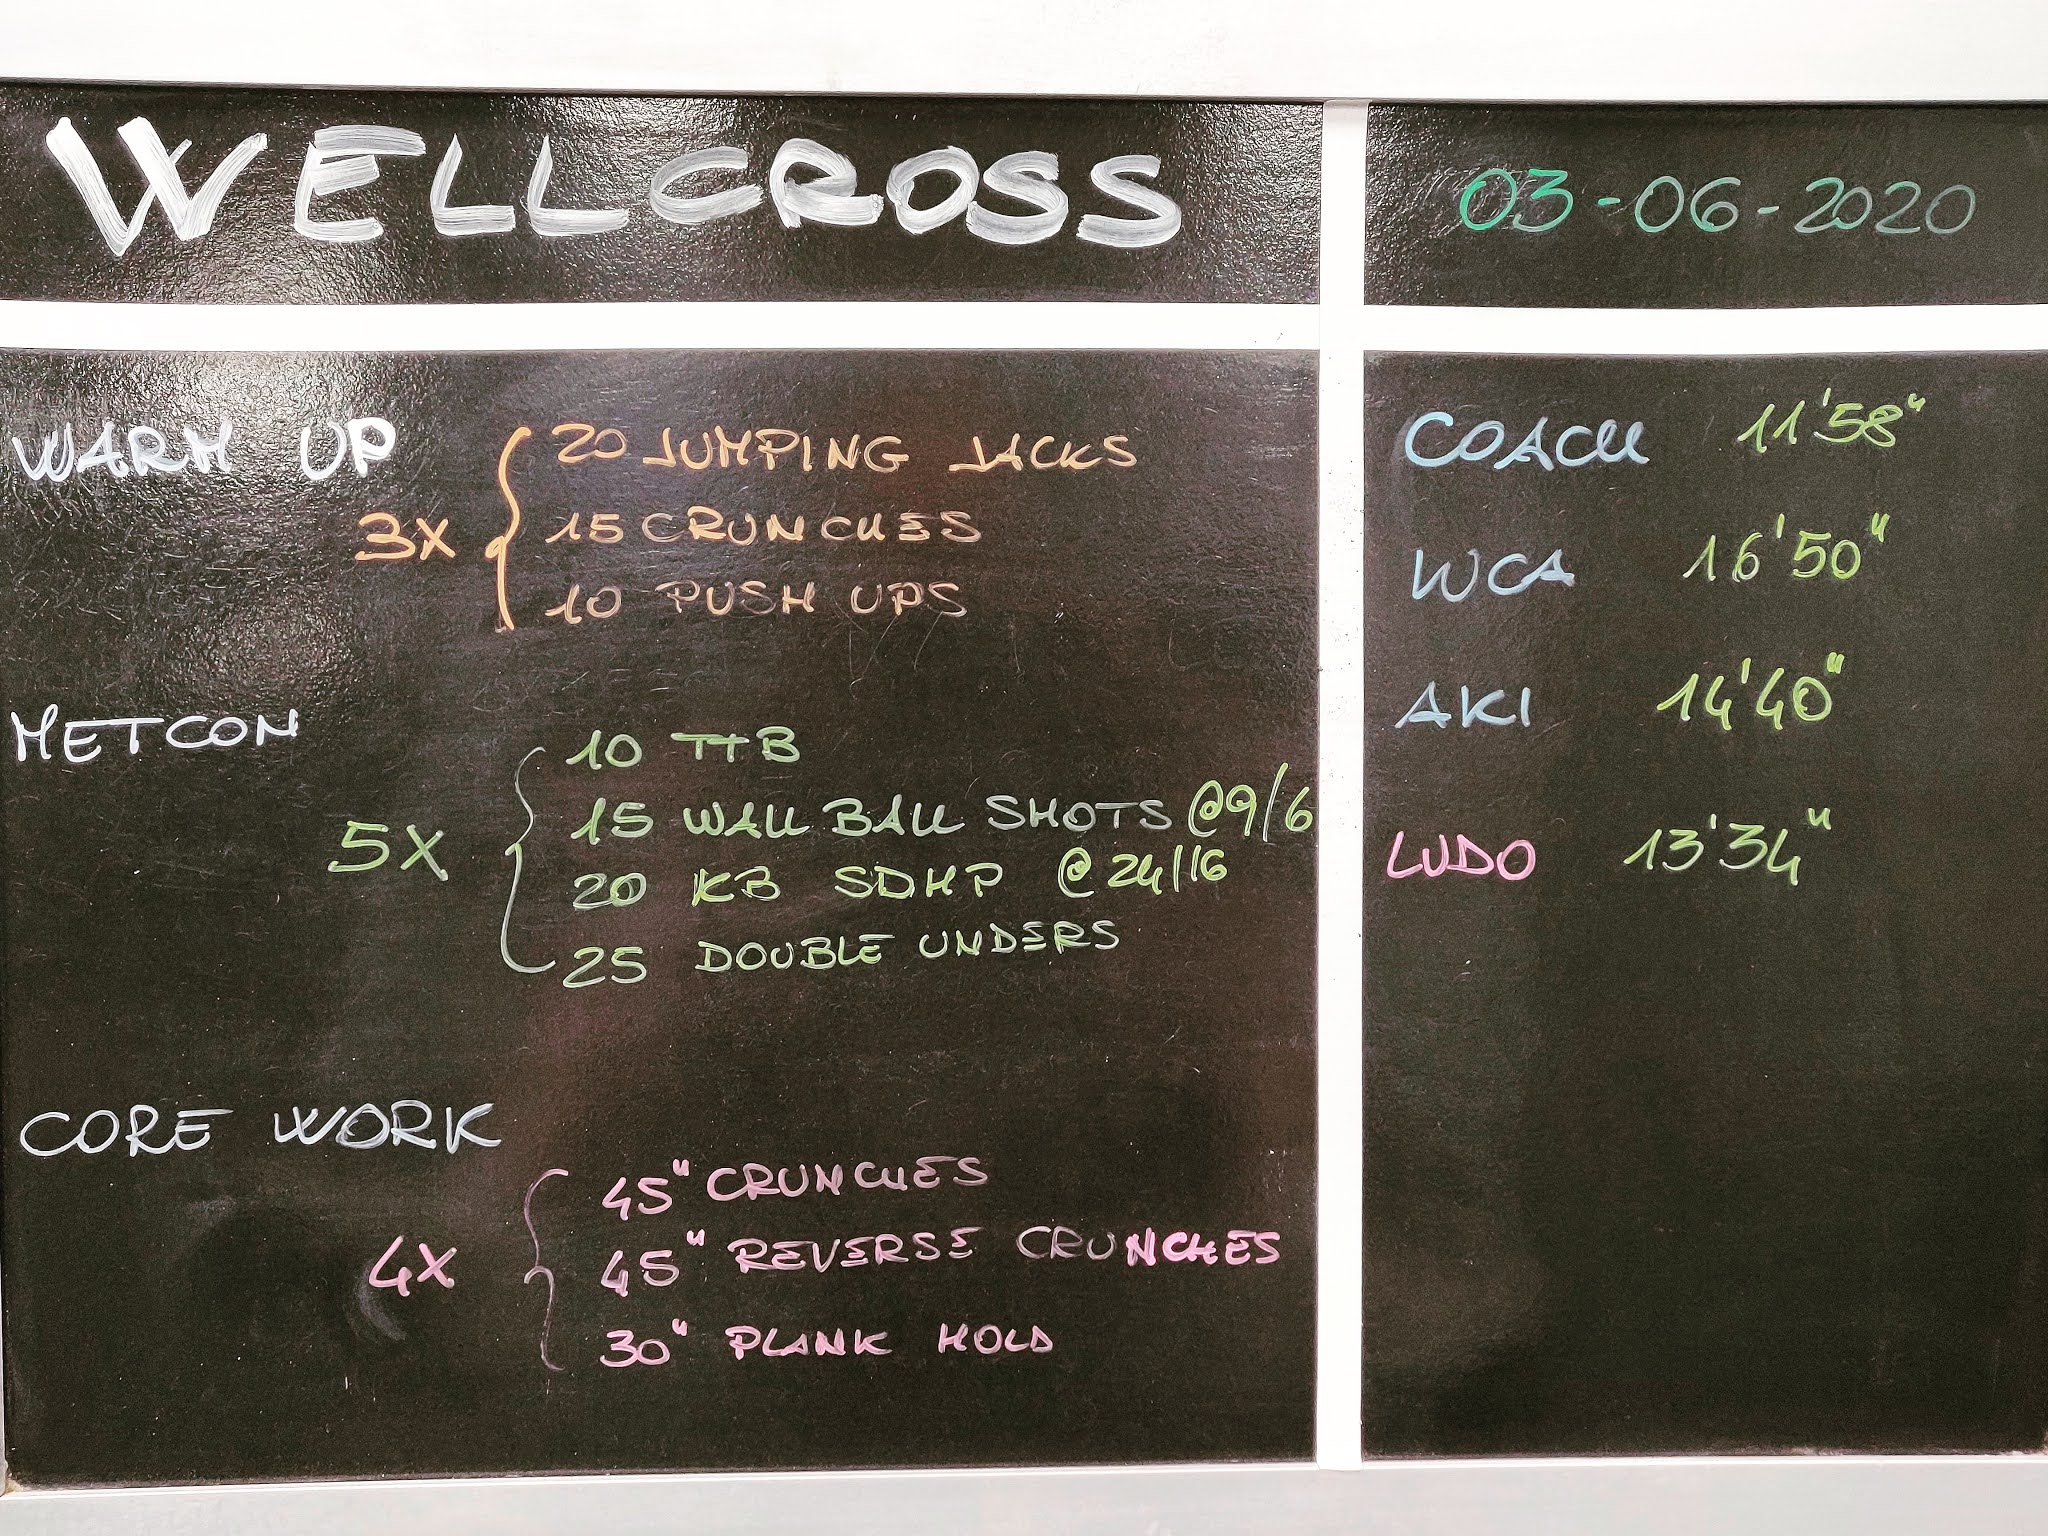 WELLCROSS
03-06-2020
WARM UP
3X
20 JUMPING JACKS
15 CRUNCHES
10 PUSH UPS
METCON
5X
10 TTB
15 WALL BALL SHOTS @9/6
20 KB SDHP @24/16
25 DOUBLE UNDERS
CORE WORK
4X
45" CRUNCHES
45" REVERSE CRUNCHES
30" PLANK HOLD
COACH 11'58"
WCA 16'50"
AKI 14'40"
LUDO 13'34"